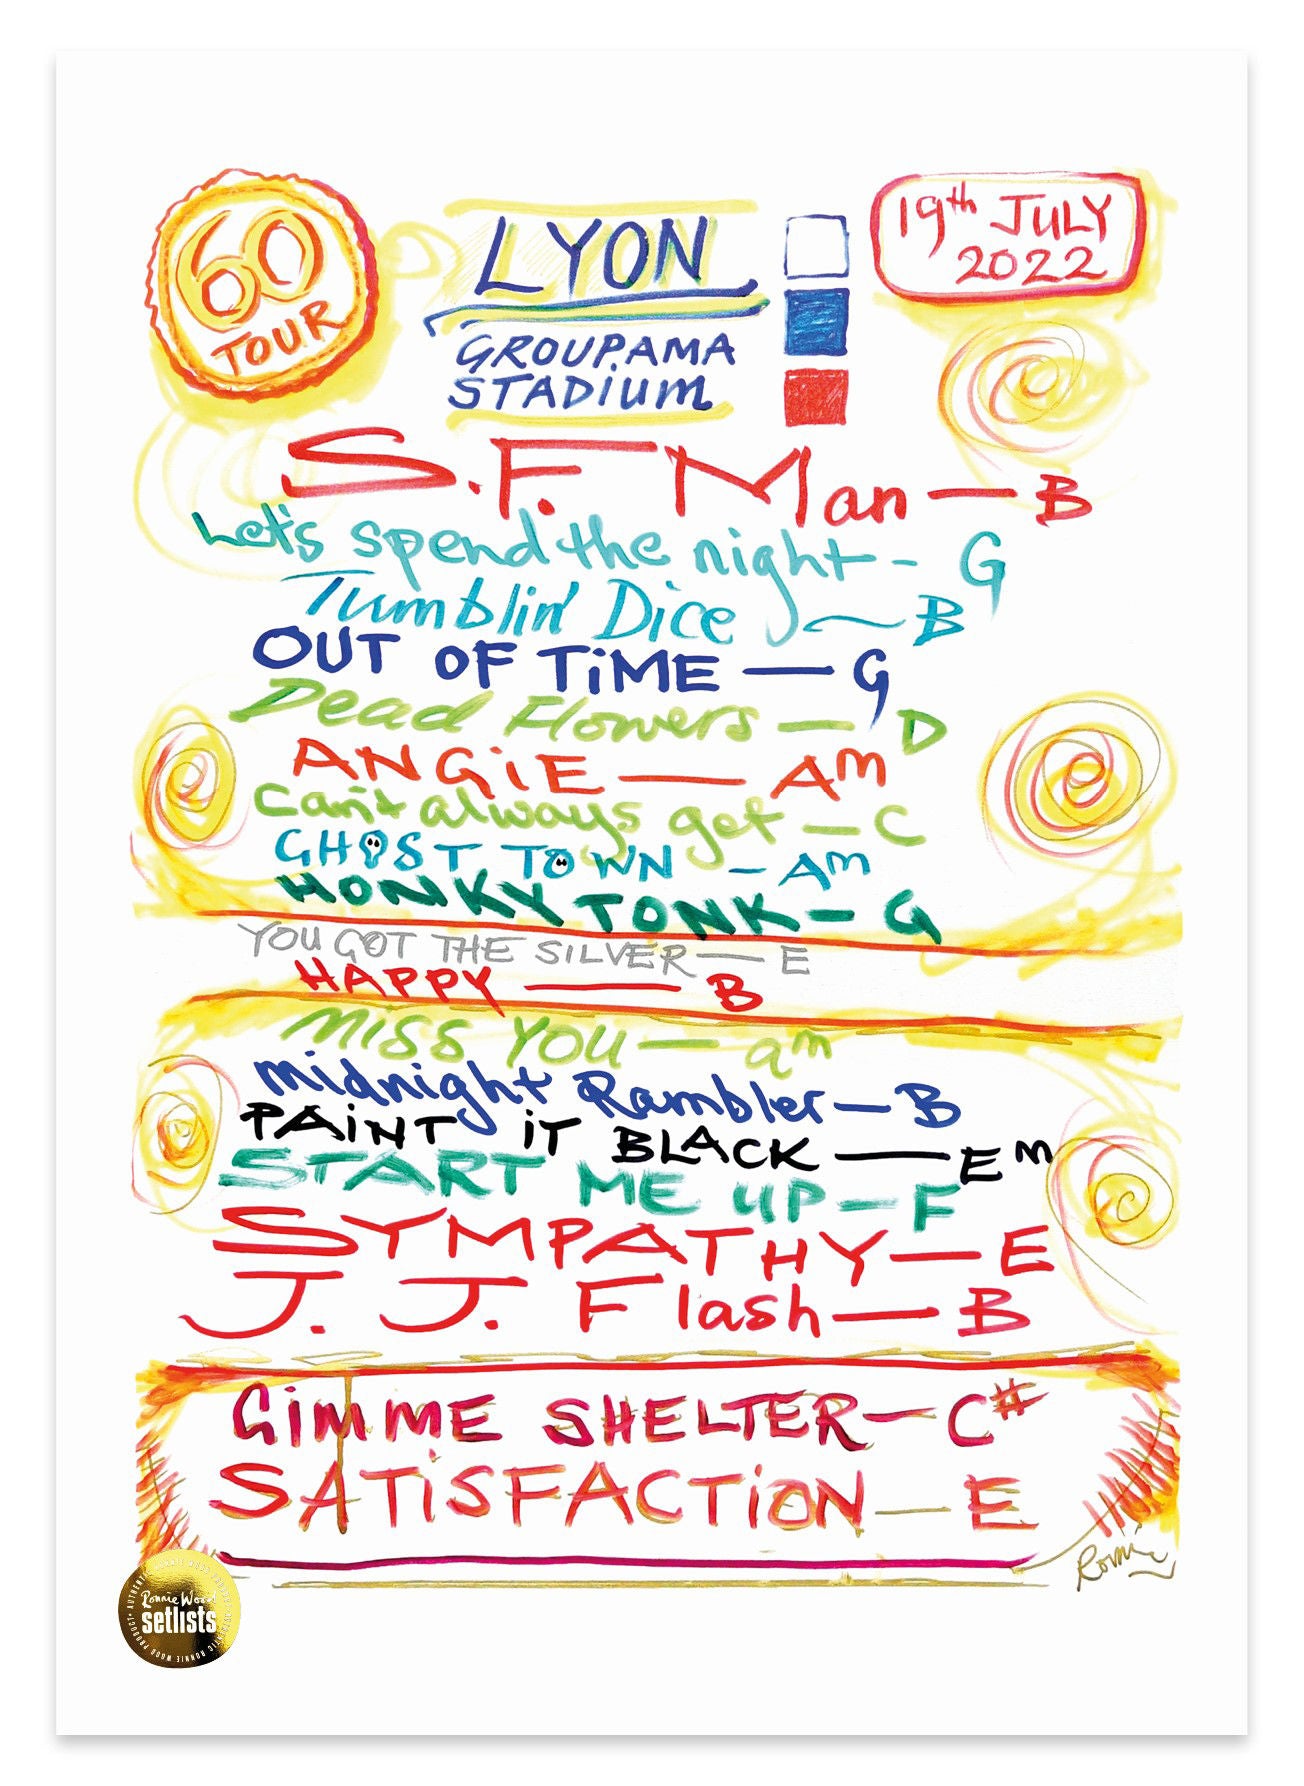 60
TOUR
LYON
GROUPAMA
STADIUM
19th JULY
2022
S.F. Man — B
Let's spend the night - G
Tumblin' Dice ~ B
OUT OF TiME — G
Dead Flowers — D
ANGiE — Am
Can't always get — C
GHOST TOWN - Am
HONKY TONK - G
YOU GOT THE SILVER — E
HAPPY — B
MISS YOU — am
Midnight Rambler — B
PAiNT iT BLACK — Em
START ME UP — F
SYMPATHY — E
J. J. Flash — B
GiMME SHELTER — C#
SATiSFACTiON — E
Ronnie
Ronnie Wood
setlists
AUTHENTIC RONNIE WOOD PRODUCT